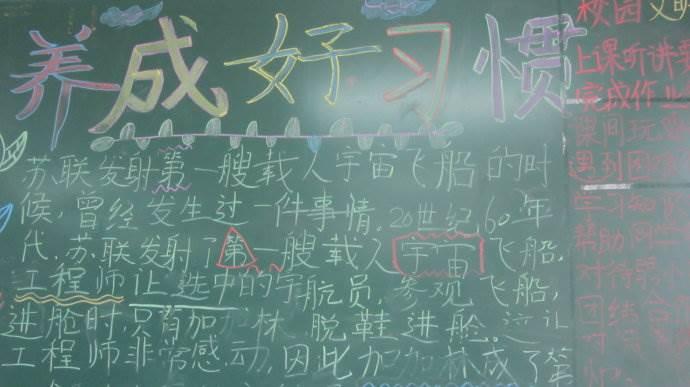 养成好习惯
苏联发射第一艘载人宇宙飞船的时
候,曾经发生过一件事情。20世纪60年
代,苏联发射了第一艘载人宇宙飞船,
工程师让选中的宇航员,参观飞船,
进舱时,只有加加林脱鞋进舱。这让
工程师非常感动,因此加加林成了第
校园文明
上课听讲要
完成作业
课间玩
遇到困
学习
帮助同
对待
团结合